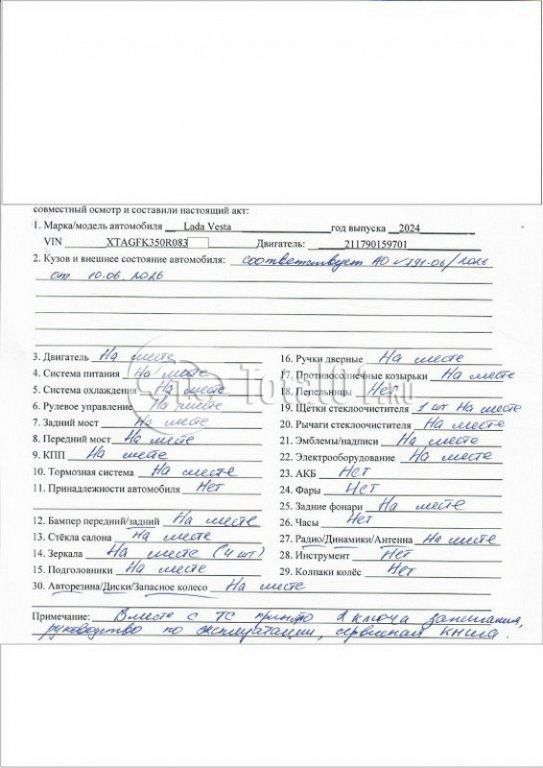 совместный осмотр и составили настоящий акт:
1. Марка/модель автомобиля Lada Vesta год выпуска 2024
VIN XTAGFK350R083 Двигатель: 211790159701
2. Кузов и внешнее состояние автомобиля: соответствует АО №191-06/2026
от 10.06.2026
3. Двигатель На месте
4. Система питания На месте
5. Система охлаждения На месте
6. Рулевое управление На месте
7. Задний мост На месте
8. Передний мост На месте
9. КПП На месте
10. Тормозная система На месте
11. Принадлежности автомобиля Нет
12. Бампер передний/задний На месте
13. Стёкла салона На месте
14. Зеркала На месте (4 шт)
15. Подголовники На месте
16. Ручки дверные На месте
17. Противосолнечные козырьки На месте
18. Пепельницы Нет
19. Щётки стеклоочистителя 1 шт На месте
20. Рычаги стеклоочистителя На месте
21. Эмблемы/надписи На месте
22. Электрооборудование На месте
23. АКБ Нет
24. Фары Нет
25. Задние фонари На месте
26. Часы Нет
27. Радио/Динамики/Антенна На месте
28. Инструмент Нет
29. Колпаки колёс Нет
30. Авторезина/Диски/Запасное колесо На месте
Примечание: Вместе с ТС принято 2 ключа зажигания,
руководство по эксплуатации, сервисная книга.
Total01.ru